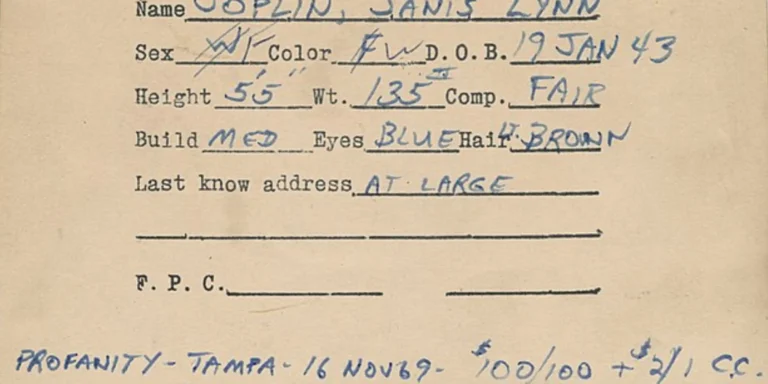 Name JOPLIN, JANIS LYNN
Sex F Color W D.O.B. 19 JAN 43
Height 5'5" Wt. 135 Comp. FAIR
Build MED Eyes BLUE Hair LT. BROWN
Last know address AT LARGE
F. P. C.
PROFANITY - TAMPA - 16 NOV 69 - $100/100 + $2/1 C.C.